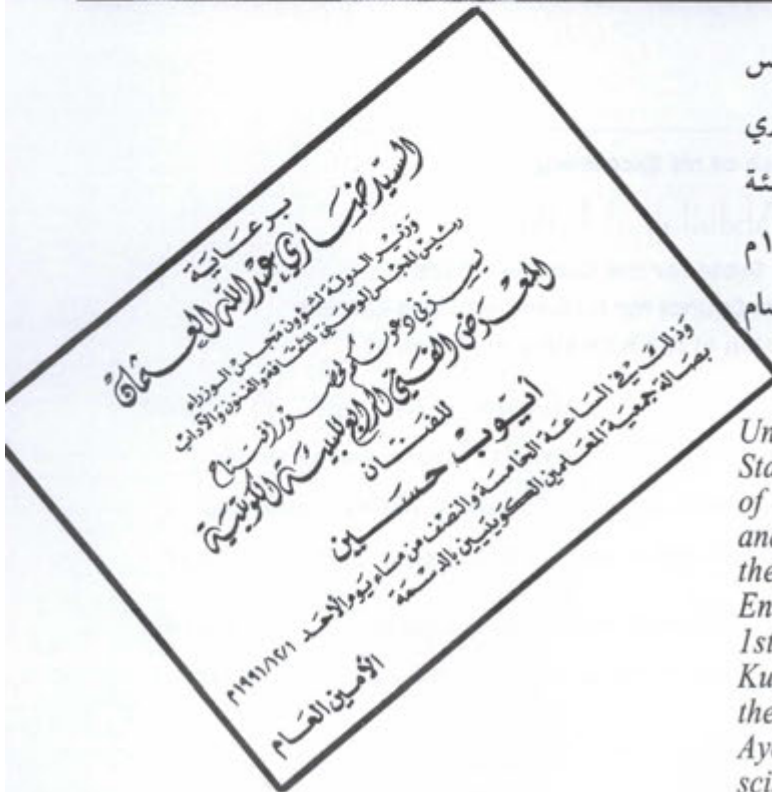 برعاية
السيد ضاري عبد الله العثمان
وزير الدولة لشؤون مجلس الوزراء
رئيس المجلس الوطني للثقافة والفنون والآداب
يسرني دعوتكم لحضور افتتاح
المعرض الفني الرابع للبيئة الكويتية
للفنان
أيوب حسين
وذلك في الساعة الخامسة والنصف من مساء يوم الأحد ١٩٩١/١٢/١م
بصالة جمعية المعلمين الكويتيين بالدسمة
الأمين العام
Un
Sta
of
and
the
En
1st
Ku
the
Ay
sci